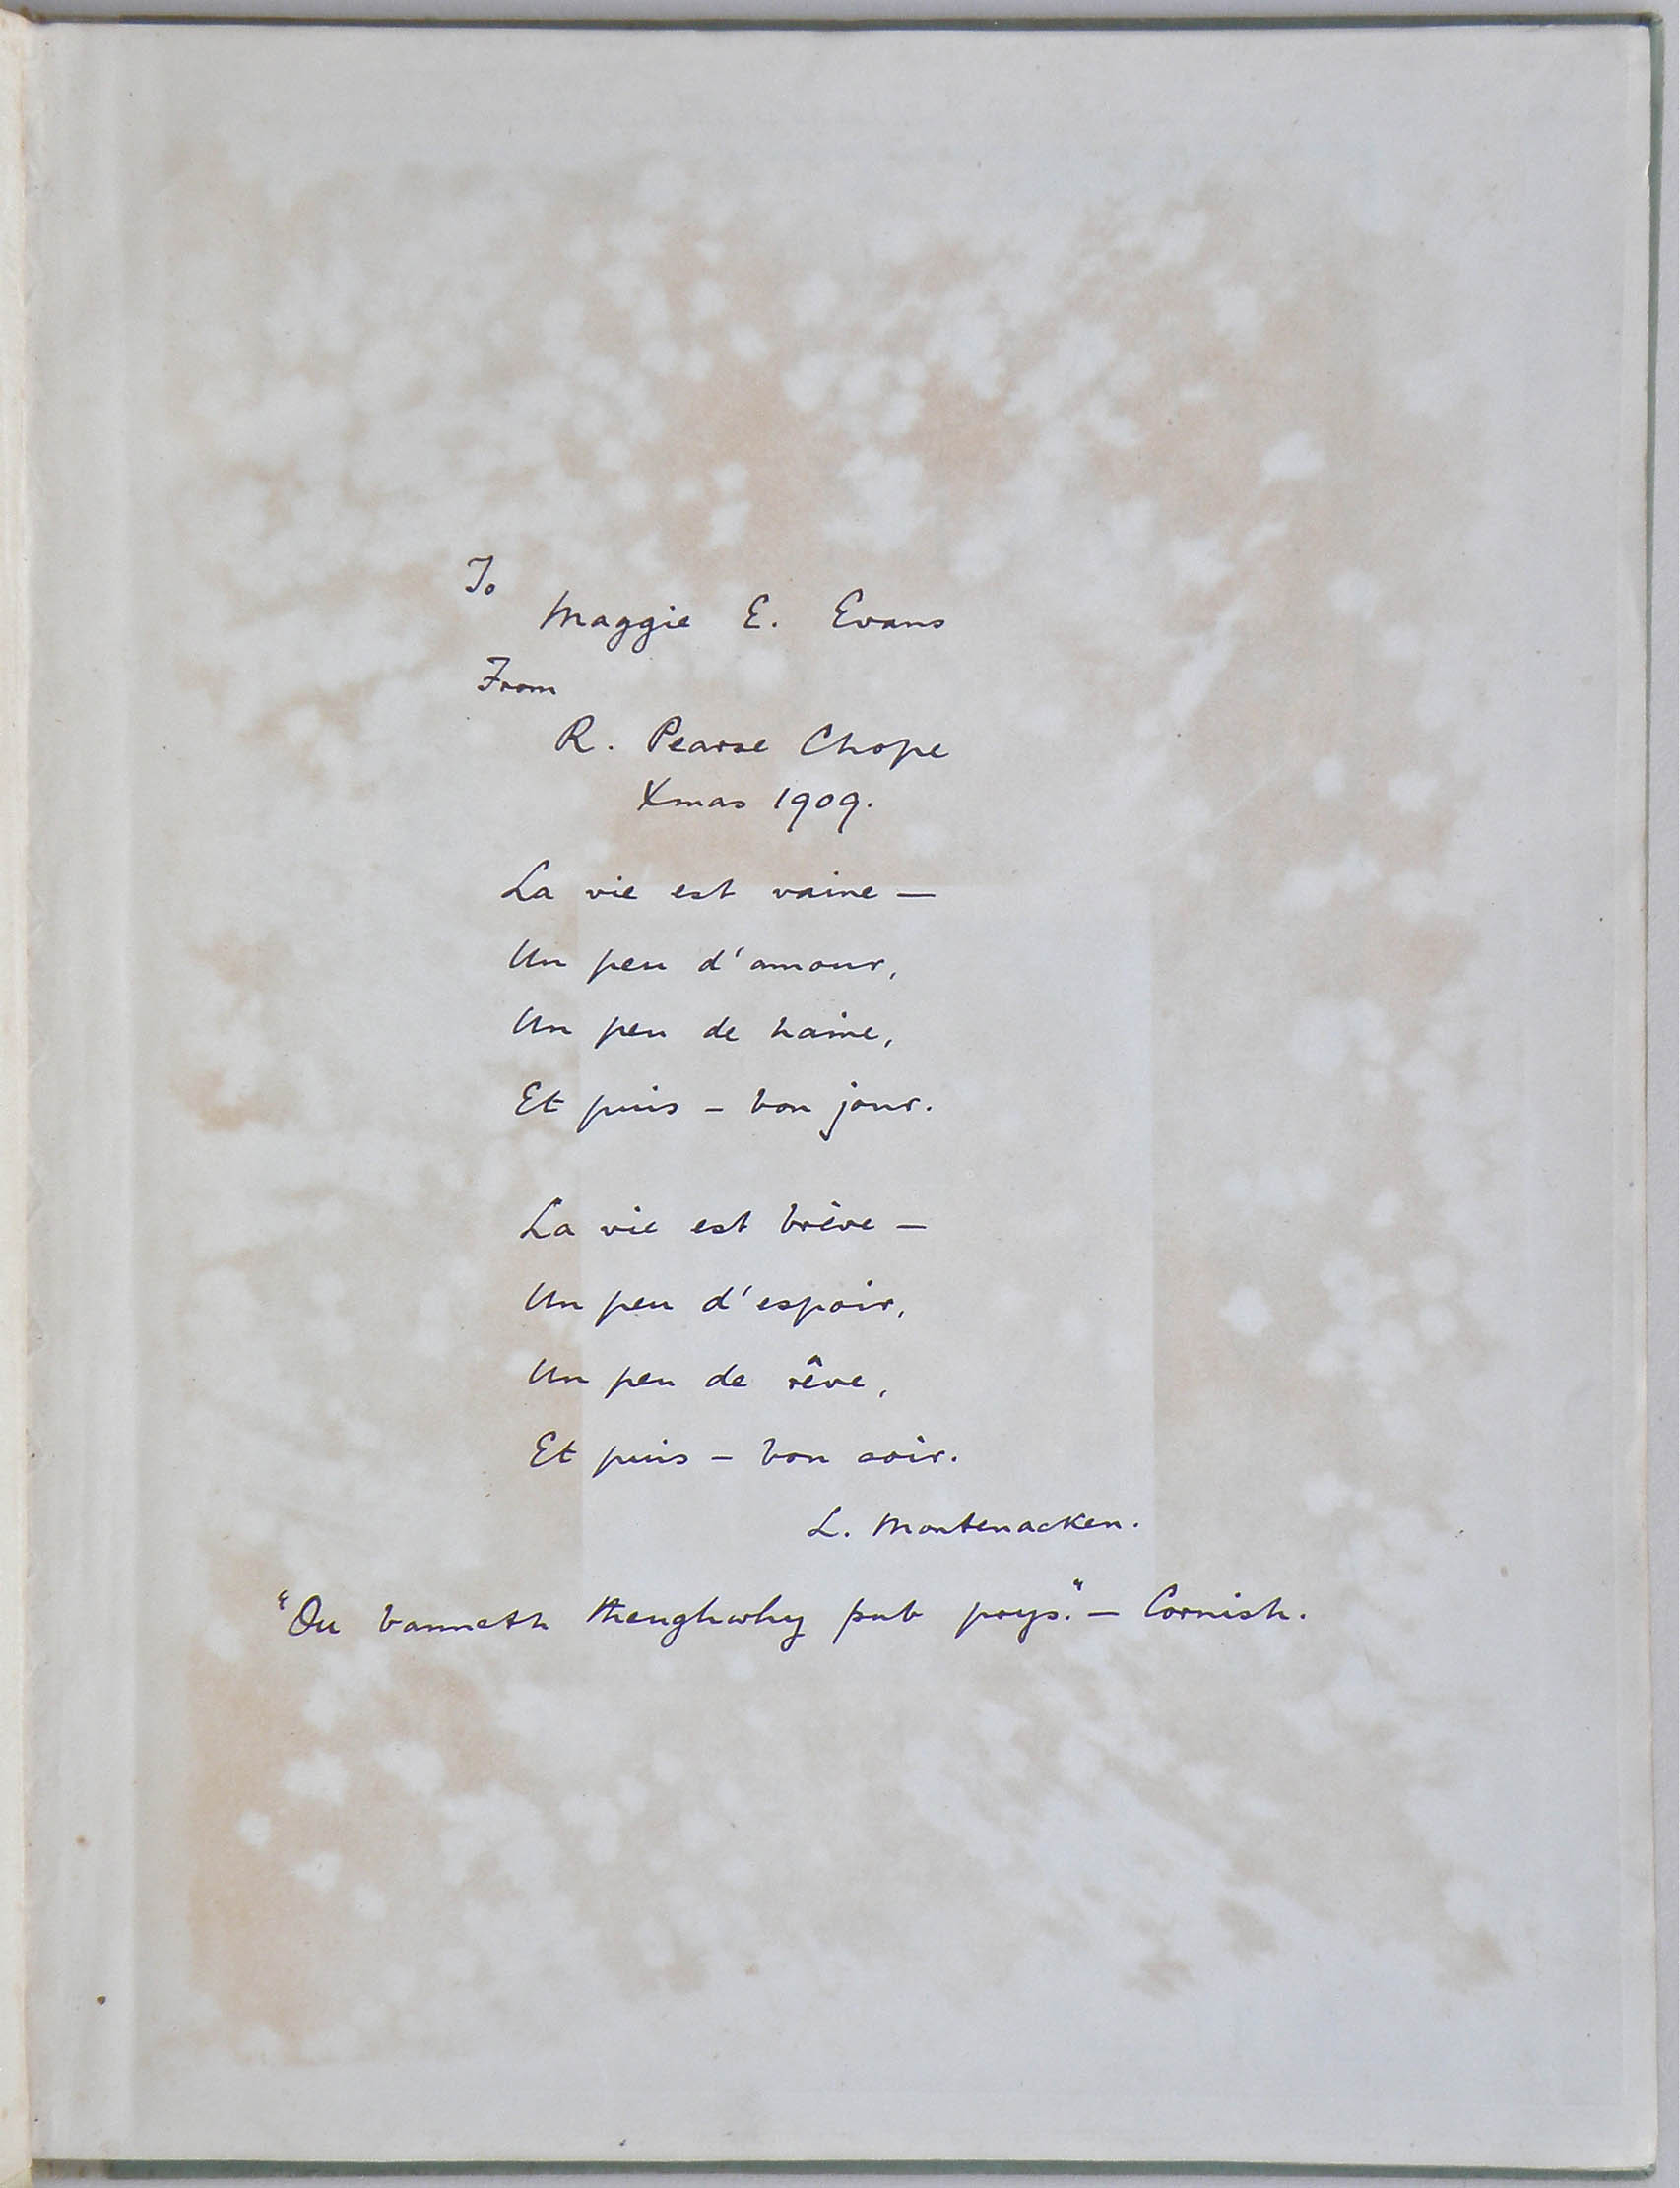 To
Maggie E. Evans
From
R. Pearse Chope
Xmas 1909.
La vie est vaine —
Un peu d'amour,
Un peu de haine,
Et puis – bon jour.
La vie est brève –
Un peu d'espoir,
Un peu de rêve,
Et puis – bon soir.
L. Montenacken.
"Ou banneth theughwhy pub prys." – Cornish.